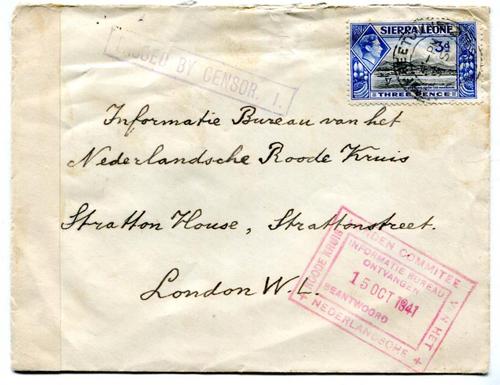 PASSED BY CENSOR 1.
SIERRA LEONE
3d
THREE PENCE
FREETOWN
Informatie Bureau van het
Nederlandsche Roode Kruis
Stratton House, Strattonstreet.
London W.1.
LONDEN COMMITEE VAN HET
NEDERLANDSCHE
ROODE KRUIS
INFORMATIE BUREAU
ONTVANGEN
15 OCT 1941
BEANTWOORD